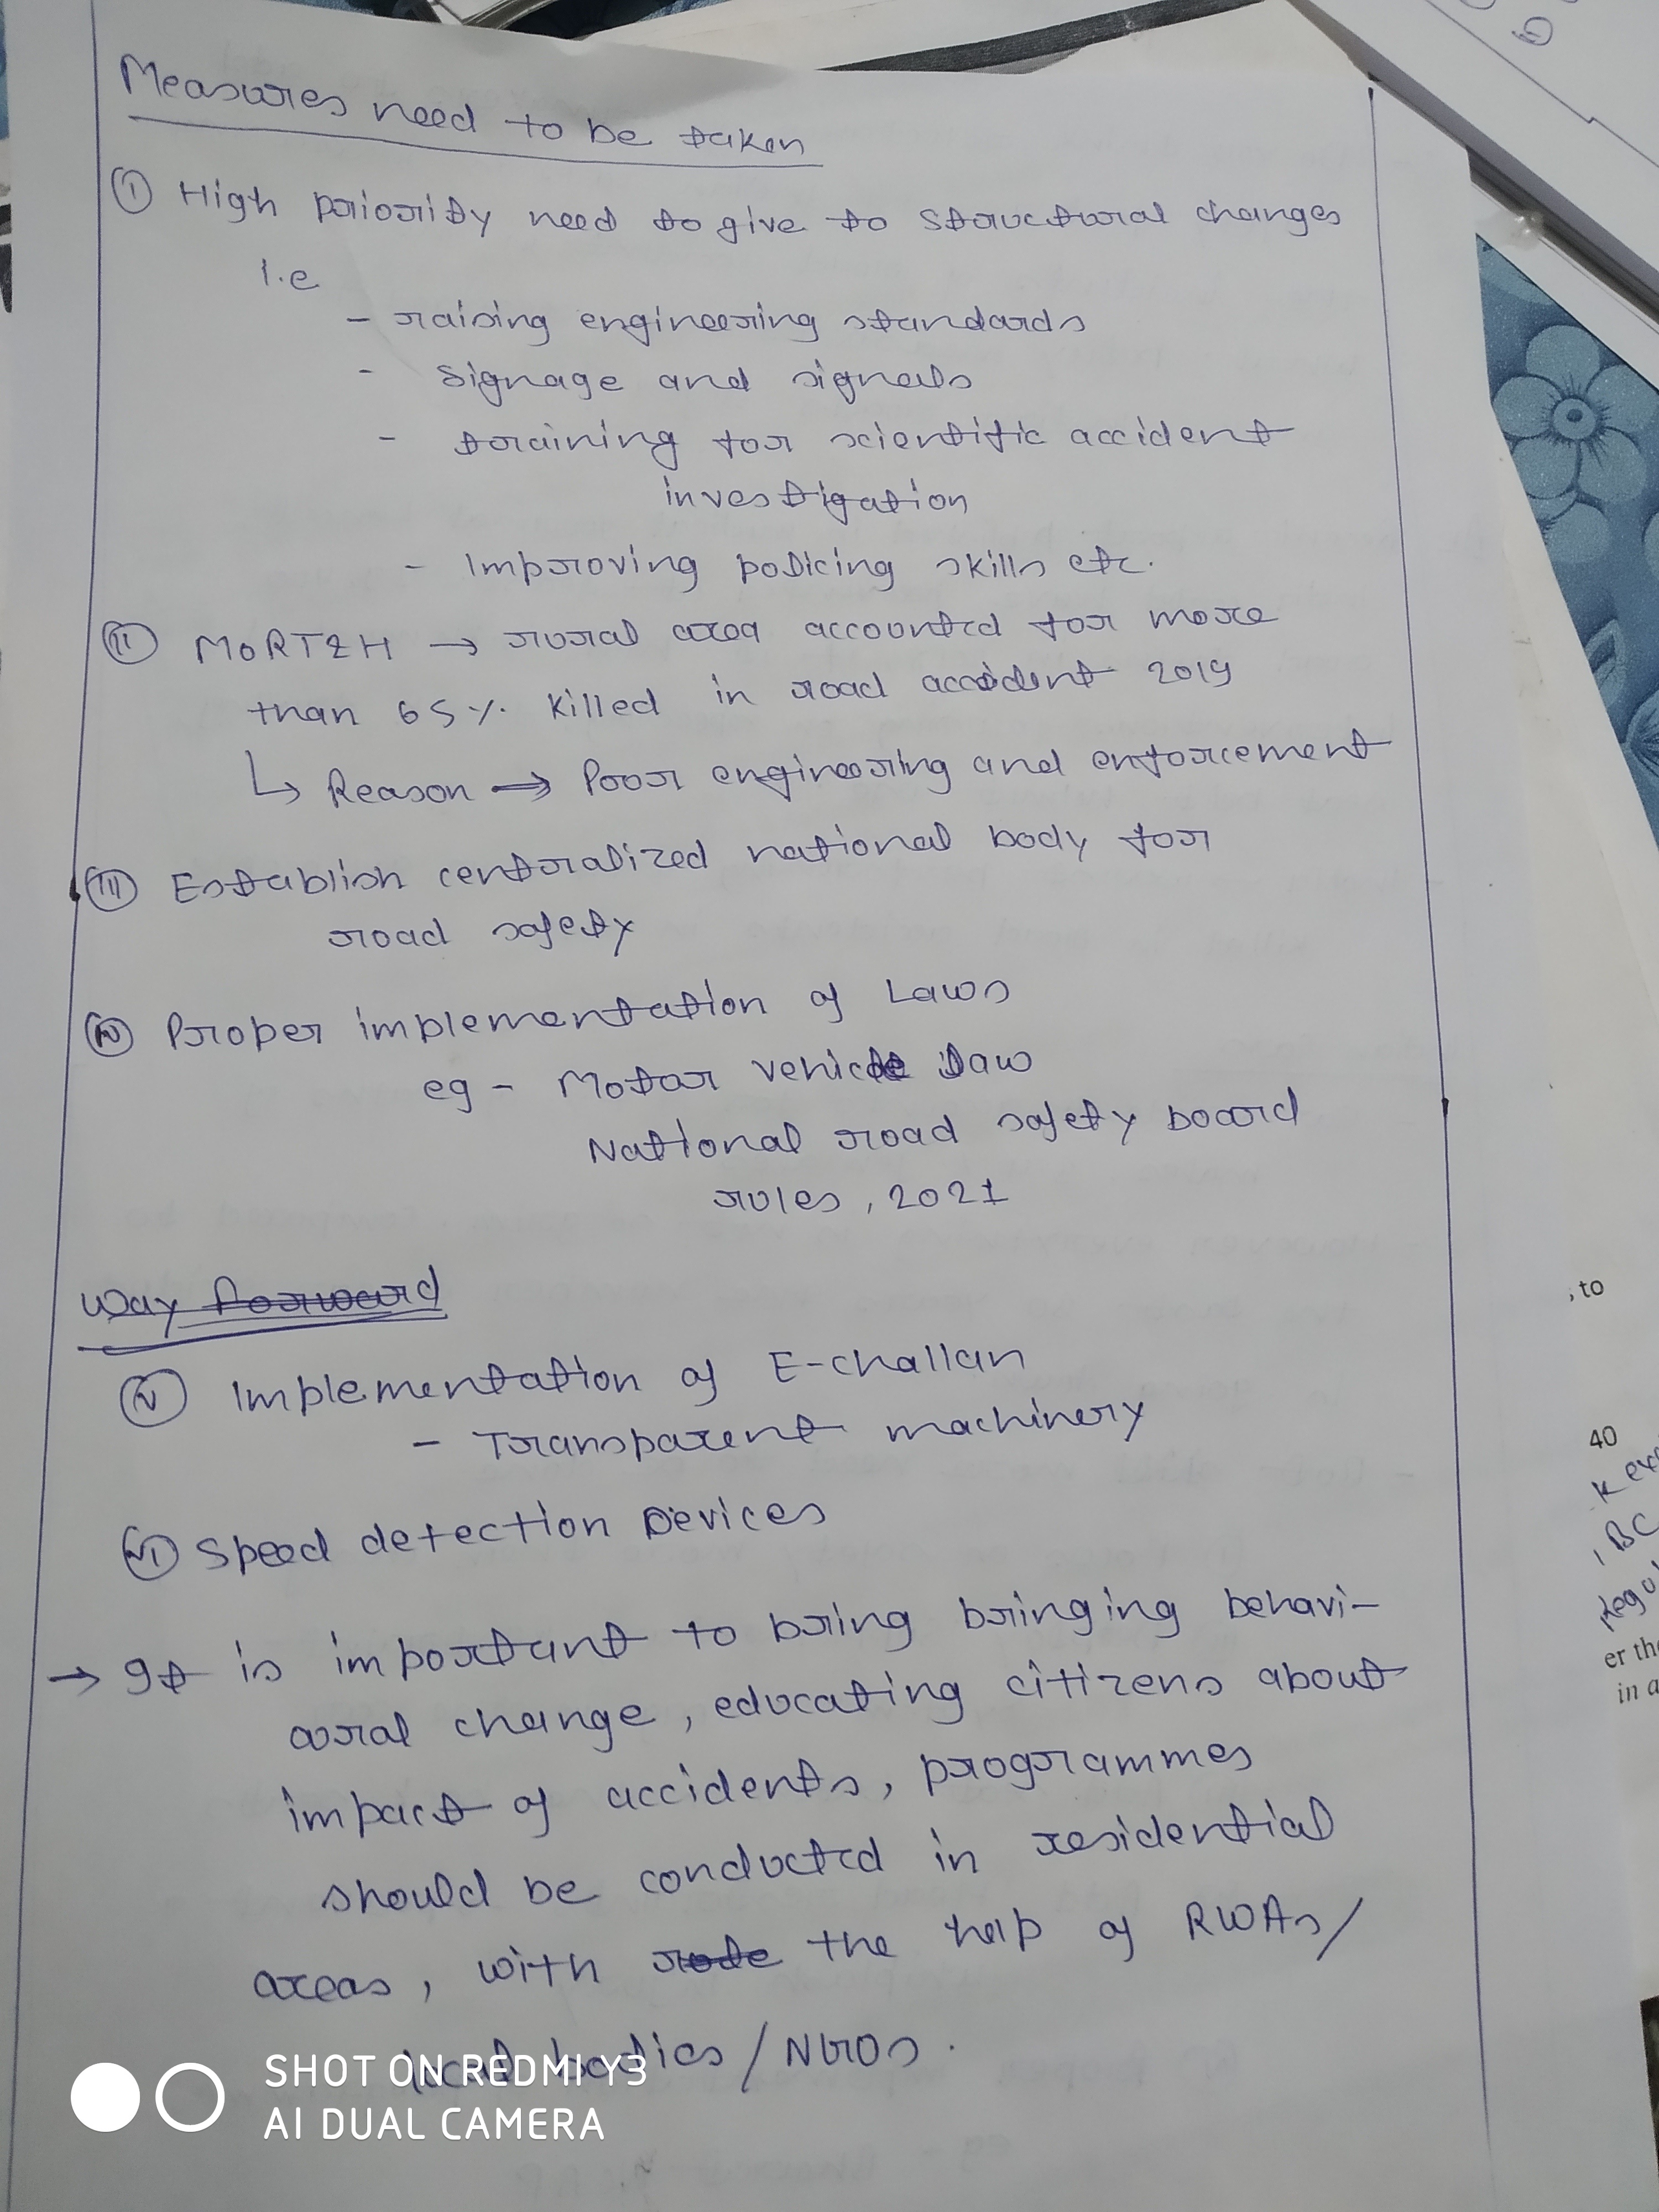 Measures need to be taken
① High priority need to give to structural changes
I.e
- raising engineering standards
- signage and signals
- training for scientific accident
investigation
- Improving policing skills etc.
Ⓘⓘ MoRT&H → rural area accounted for more
than 65% killed in road accident 2019
↳ Reason → Poor engineering and enforcement
(III) Establish centralized national body for
road safety
(IV) Proper implementation of Laws
eg - Motor vehicle law
National road safety board
rules, 2021
Way Forward
(V) Implementation of E-challan
- Transparent machinery
(VI) Speed detection Devices
→ It is important to bring bringing behavi-
oural change, educating citizens about
impact of accidents, programmes
should be conducted in residential
areas, with role the help of RWAs/
local bodies/NGOs.
SHOT ON REDMI Y3
AI DUAL CAMERA
, to
40
er the
in a